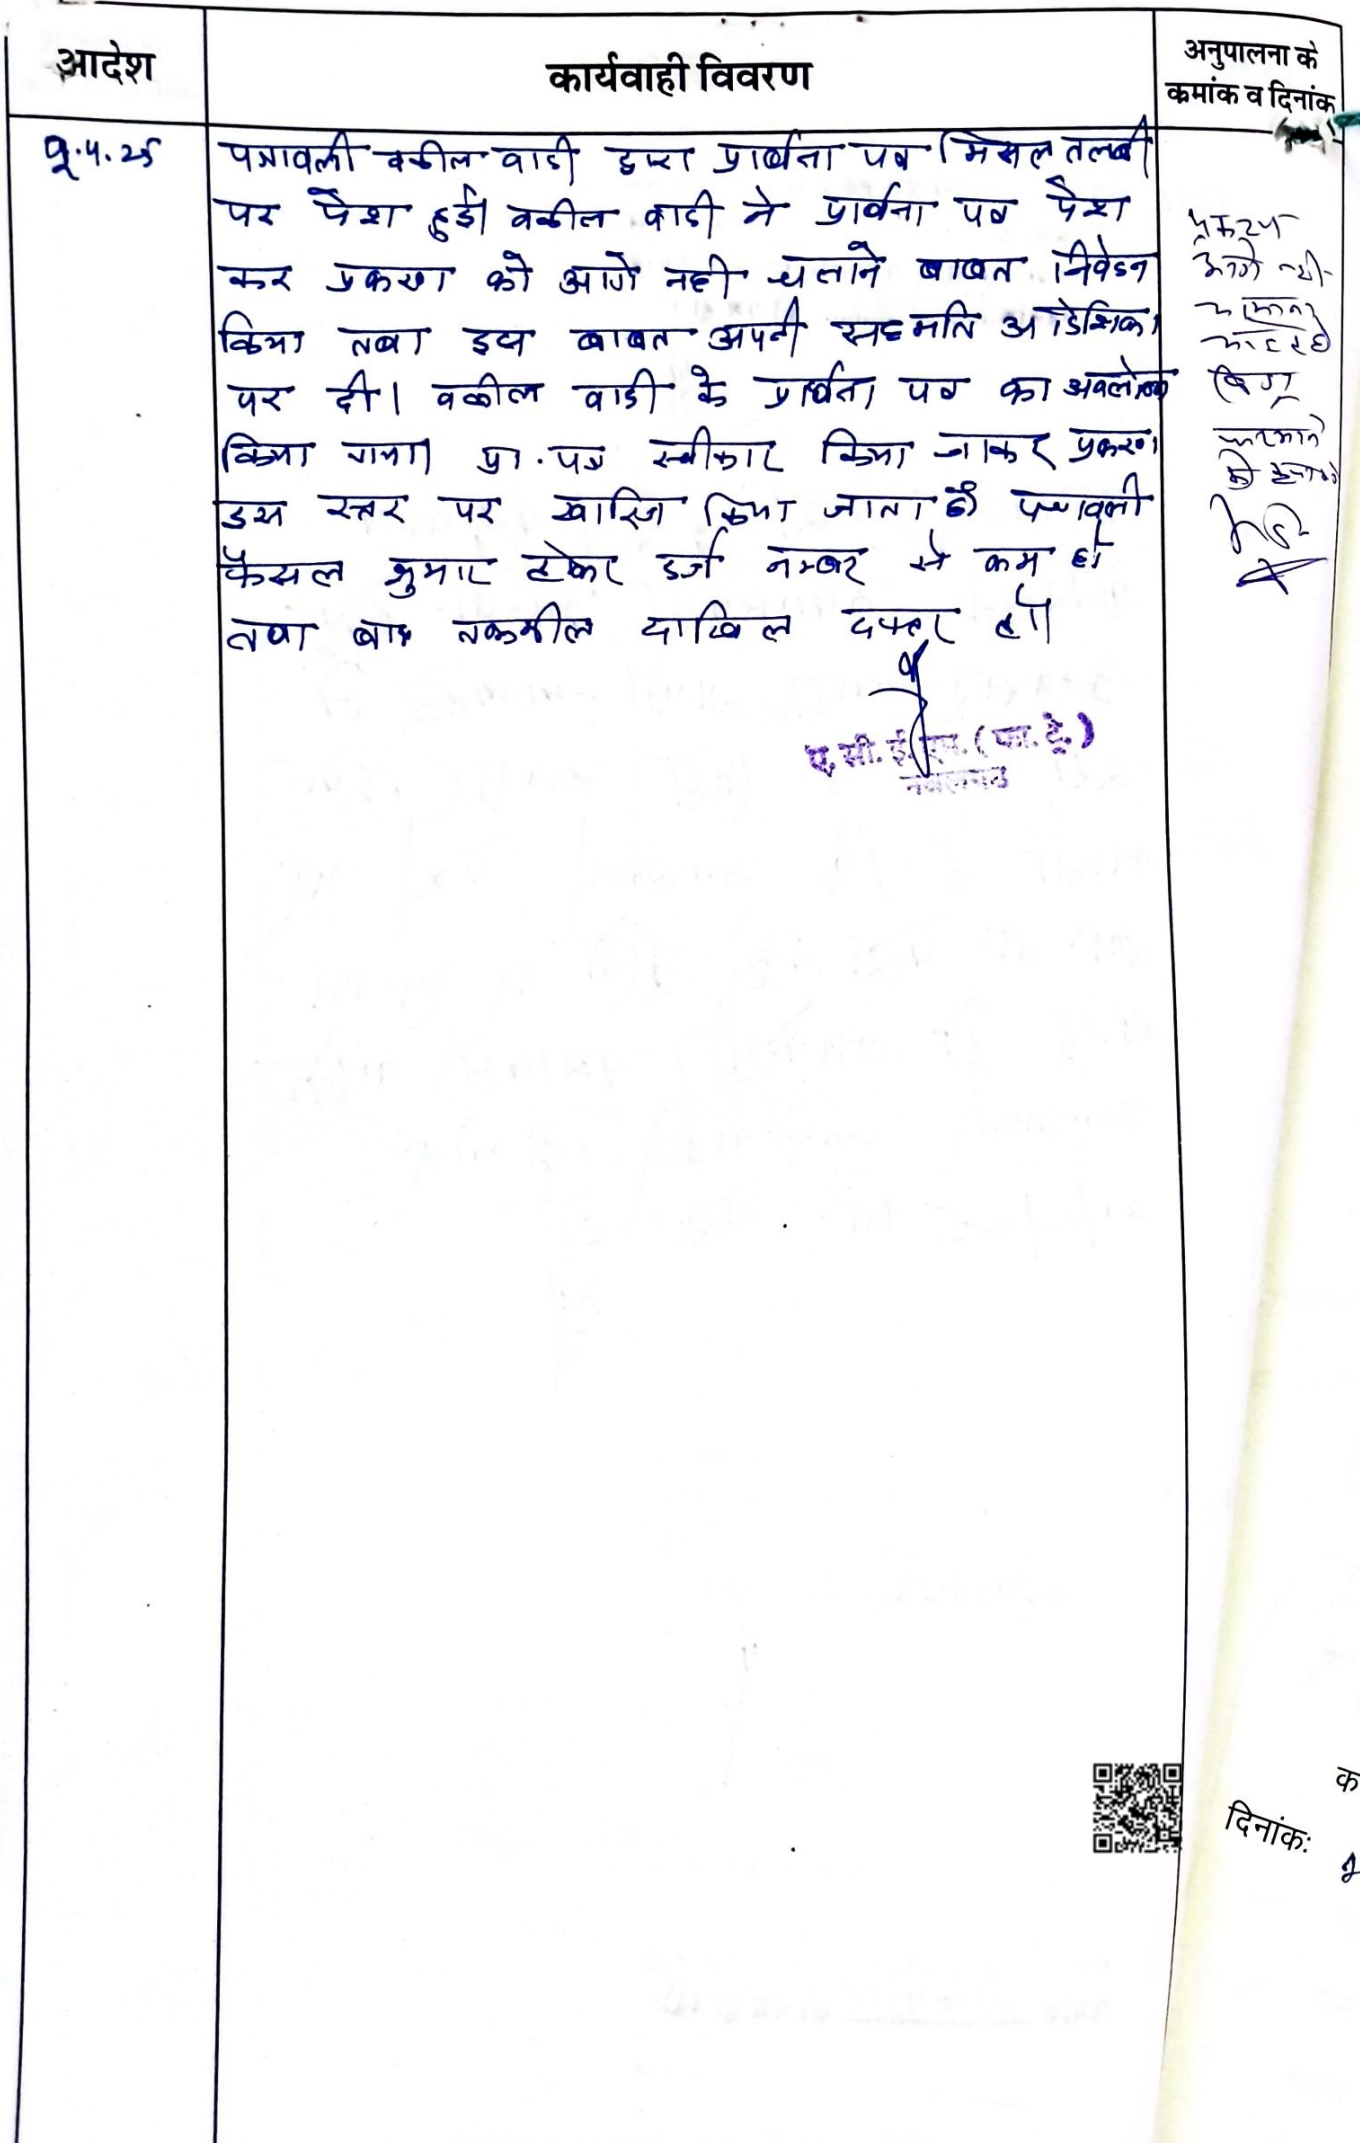 आदेश
कार्यवाही विवरण
अनुपालना के
क्रमांक व दिनांक
पत्रावली वकील वादी द्वारा प्रार्थना पत्र मिसल तलबी
पर पेश हुई। वकील वादी ने प्रार्थना पत्र पेश
कर प्रकरण को आगे नही चलाने बाबत निवेदन
किया तथा इस बाबत अपनी सहमति आदेशिका
पर दी। वकील वादी के प्रार्थना पत्र का अवलोकन
किया गया। प्रा.पत्र स्वीकार किया जाकर प्रकरण
इस स्तर पर खारिज किया जाता है। पत्रावली
फैसल शुमार होकर दर्ज नम्बर से कम हो
तथा बाद तकमील दाखिल दफ्तर हो।
ए.सी.ई.एम.(फा.ट्रे.)
नवलगढ
प्रकरण
आगे नही
दिनांक: